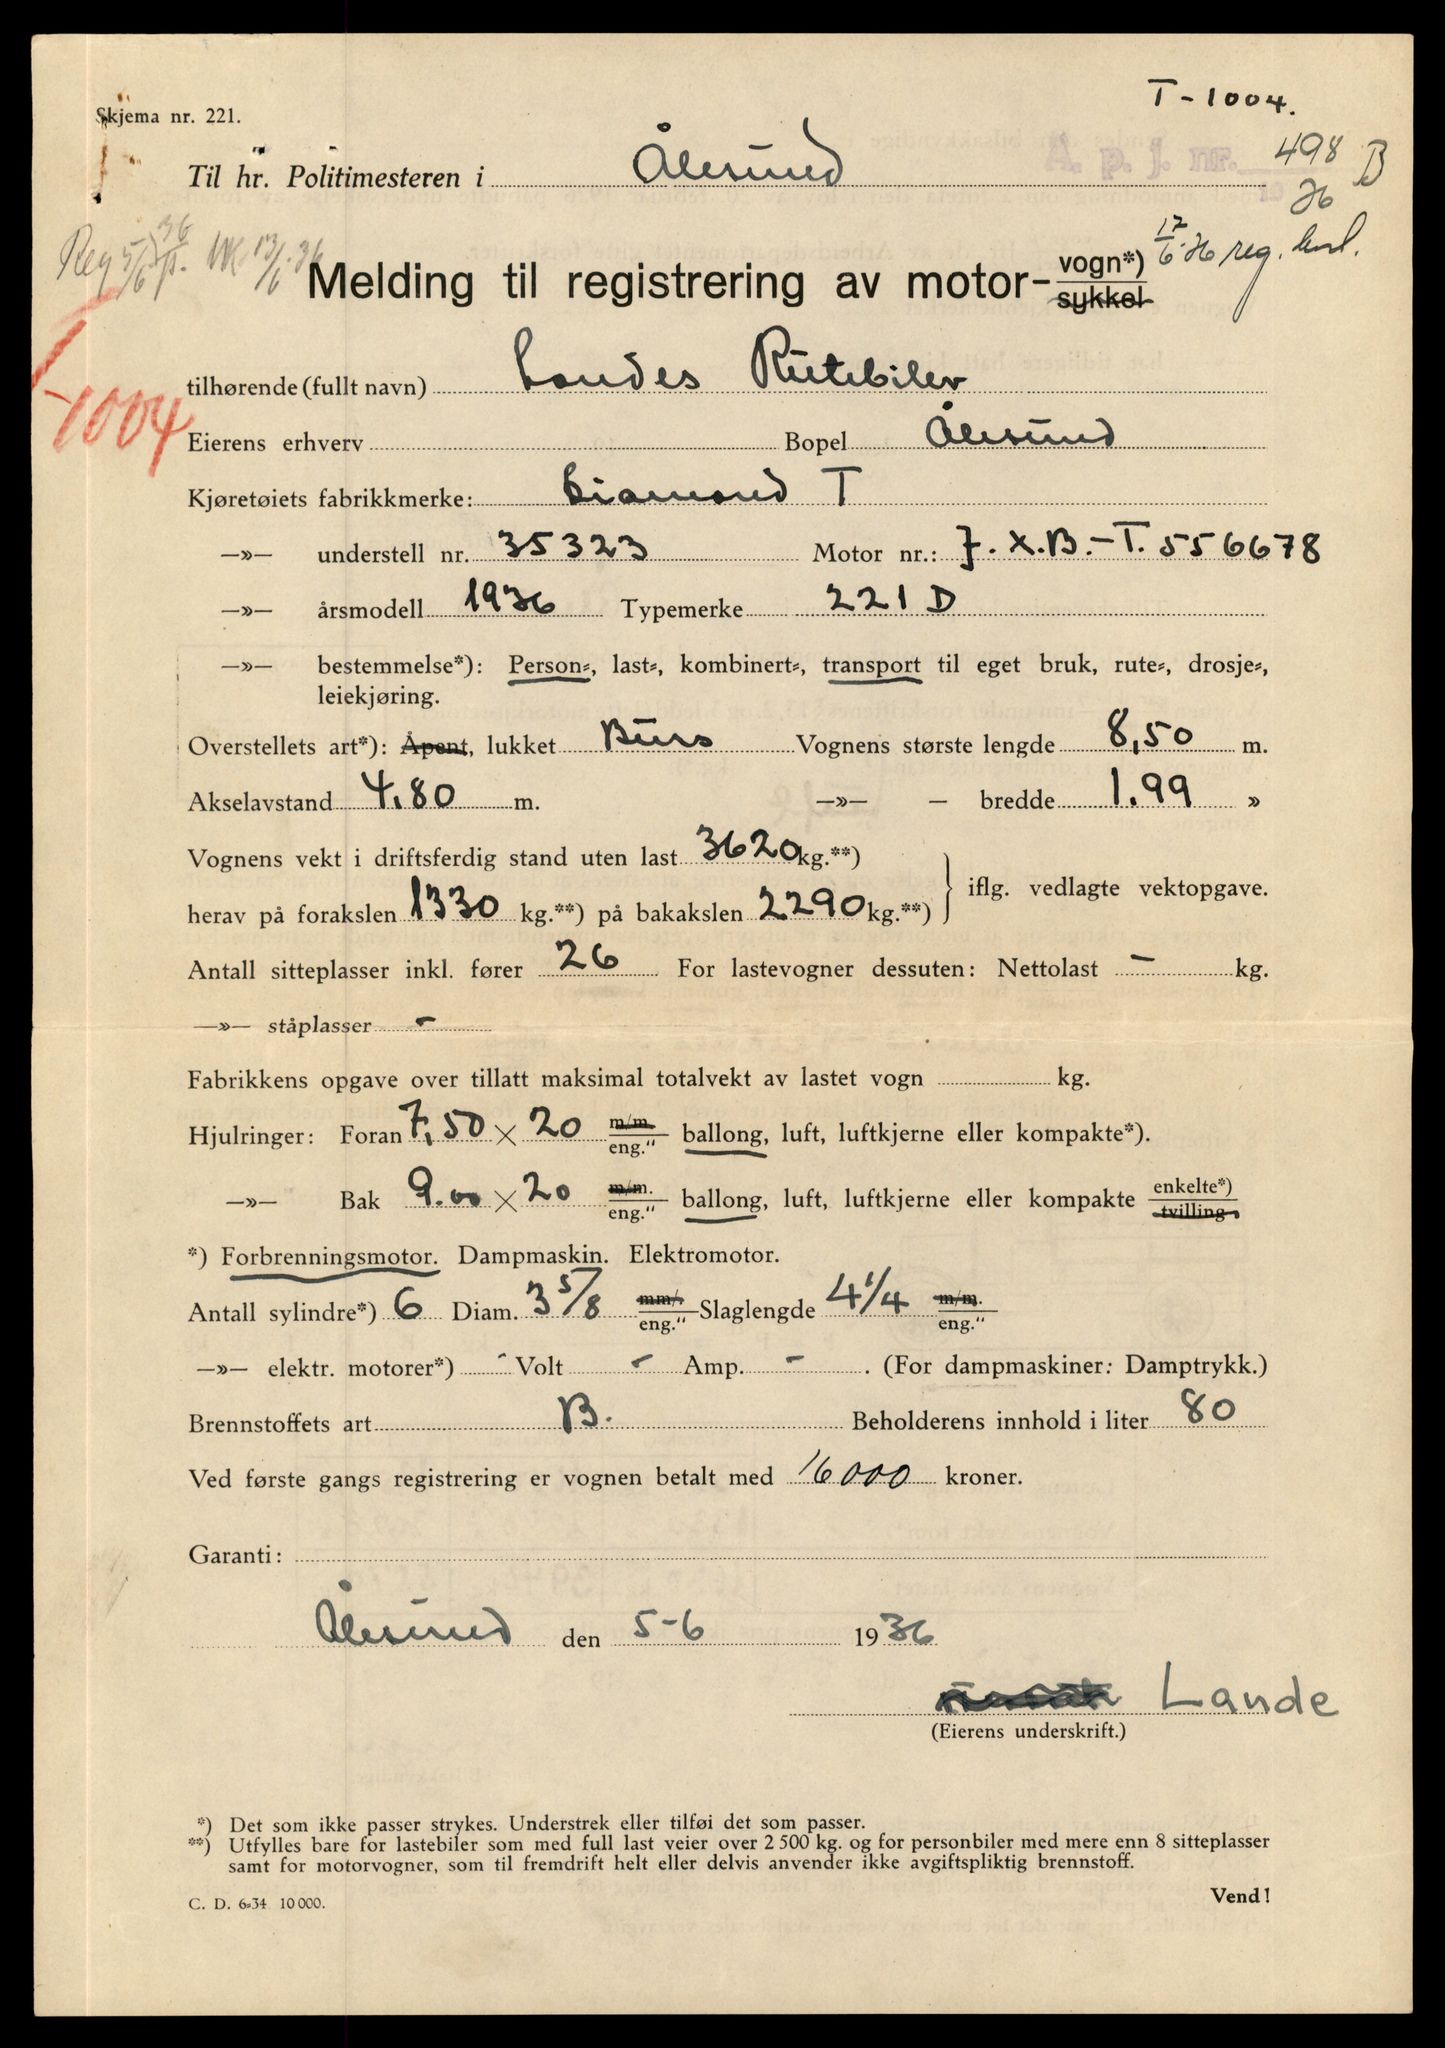 T-1004.
Skjema nr. 221.
A. p. j. nr. 498 B
36
Til hr. Politimesteren i Ålesund
Reg 5/6 36
13/6-36
17/6-36 reg.
Melding til registrering av motor- vogn*)
sykkel
T-1004
tilhørende (fullt navn) Landes Rutebiler
Eierens erhverv Bopel Ålesund
Kjøretøiets fabrikkmerke: Diamond T
—»— understell nr. 35323 Motor nr.: J.X.B.-T. 556678
—»— årsmodell 1936 Typemerke 221 D
—»— bestemmelse*): Person-, last-, kombinert-, transport til eget bruk, rute-, drosje-,
leiekjøring.
Overstellets art*): Åpent, lukket Buss Vognens største lengde 8,50 m.
Akselavstand 4.80 m. —»— — bredde 1.99 »
Vognens vekt i driftsferdig stand uten last 3620 kg.**)
herav på forakslen 1330 kg.**) på bakakslen 2290 kg.**) } iflg. vedlagte vektopgave.
Antall sitteplasser inkl. fører 26 For lastevogner dessuten: Nettolast — kg.
—»— ståplasser -
Fabrikkens opgave over tillatt maksimal totalvekt av lastet vogn kg.
Hjulringer: Foran 7,50 × 20 m/m. eng." ballong, luft, luftkjerne eller kompakte*).
—»— Bak 9.00 × 20 m/m. eng." ballong, luft, luftkjerne eller kompakte enkelte*) tvilling.
*) Forbrenningsmotor. Dampmaskin. Elektromotor.
Antall sylindre*) 6 Diam. 3 5/8 mm/. eng." Slaglengde 4 1/4 m/m. eng."
—»— elektr. motorer*) - Volt - Amp. - . (For dampmaskiner: Damptrykk.)
Brennstoffets art B. Beholderens innhold i liter 80
Ved første gangs registrering er vognen betalt med 16000 kroner.
Garanti:
Ålesund den 5-6 1936
Lande
(Eierens underskrift.)
*) Det som ikke passer strykes. Understrek eller tilføi det som passer.
**) Utfylles bare for lastebiler som med full last veier over 2 500 kg. og for personbiler med mere enn 8 sitteplasser
samt for motorvogner, som til fremdrift helt eller delvis anvender ikke avgiftspliktig brennstoff.
C. D. 6-34 10 000.
Vend!